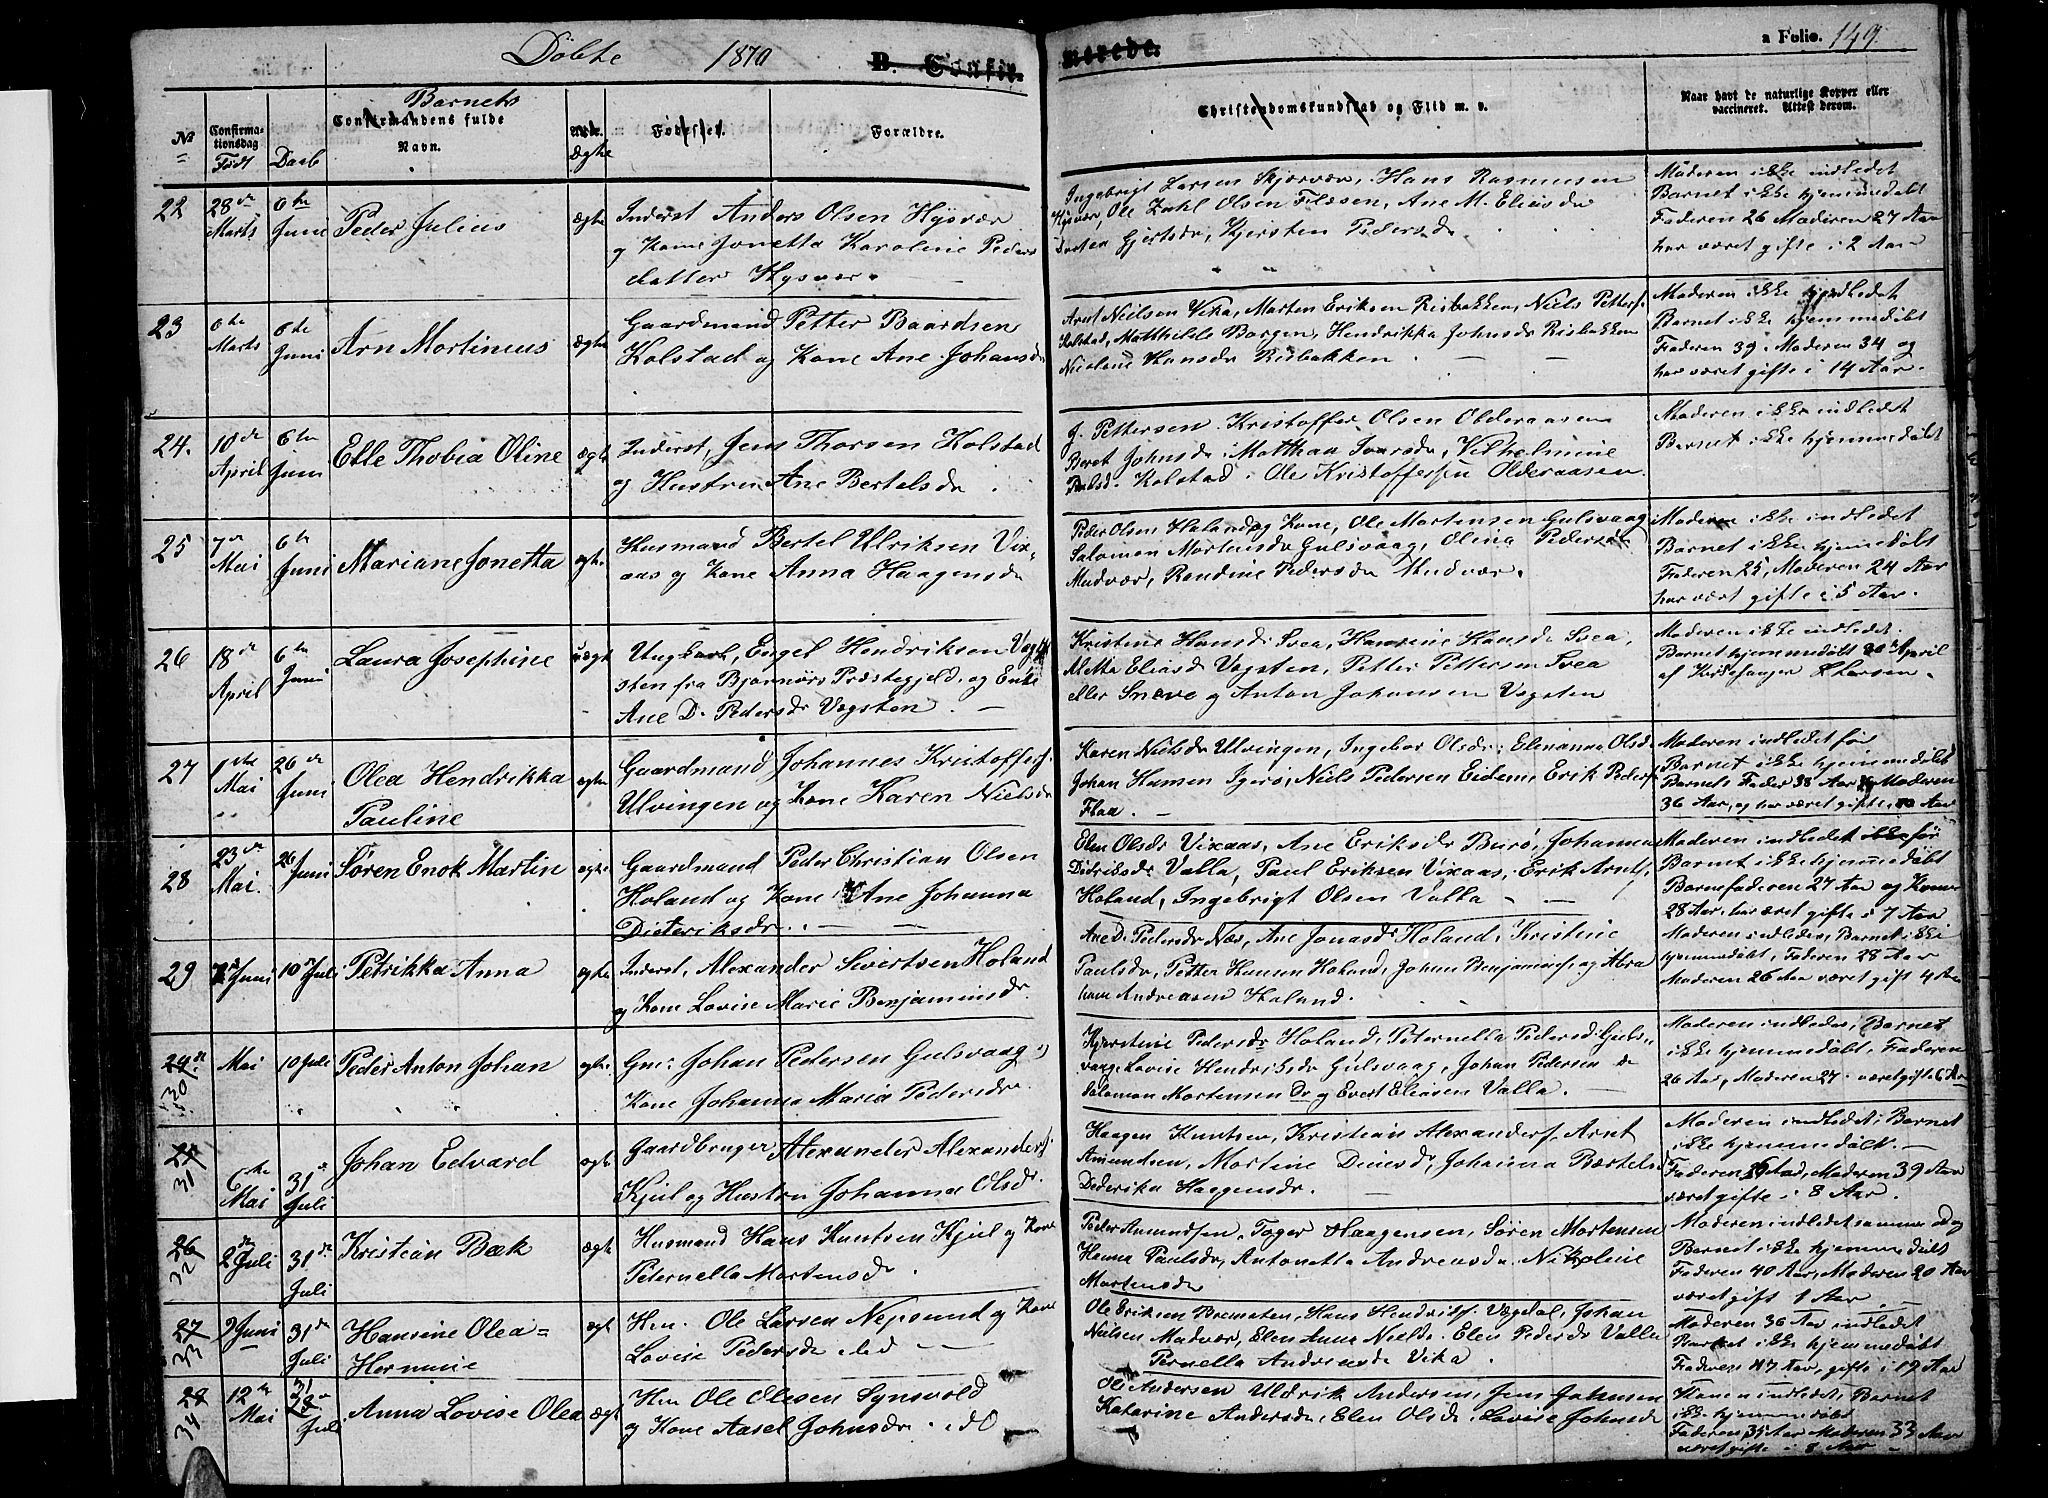 Døbte 1870 B. Confir-
merede.
a Folio. 149.
No
Confirma-
tionsdag
Født
Daab
Barnets
Confirmandens fulde
Navn.
Ægte
Fødested.
Forældre.
Christendomskundskab og Flid m. v.
Naar havt de naturlige Kopper eller
vaccineret. Attest derom.
22
28de
Marts
6te
Juni
Peder Julius
ægte
Inderst Anders Olsen Hysvær
og Kone Jonetta Karoline Peders
datter Hysvær.
Ingebrigt Larsen Skjærvær, Hans Rasmusen
Hysvær, Ole Zahl Olsen Flæsen, Ane M. Eliasdr
Dorten Gjertsdr, Kjersten Pedersdr
Moderen ikke indledet
Barnet ikke hjemmedøbt
Faderen 26 Moderen 27 Aar
har været gifte i 2 Aar
23
6te
Marts
6te
Juni
Arn Mortinius
ægte
Gaardmand Petter Baardsen
Kolstad og Kone Ane Johansdr
Arnt Nielsen Vika, Morten Eriksen Risbakken, Niels Petters.
Kolstad, Matthilde Borgen, Hendrikka Johnsdr Risbakken
Nicoline Hansdr Risbakken
Moderen ikke indledet
Barnet ikke hjemmedøbt
Faderen 39. Moderen 34 og
har været gifte i 14 Aar.
24.
10de
April
6te
Juni
Elle Thobia Oline
ægte
Inderst, Jens Thorsen Kolstad
og Hustru Ane Bertelsdr
J. Pettersen, Kristoffer Olsen Olderaasen
Beret Johnsdr, Matthan Ivarsdr, Vilhelmine
Pauls. Kolstad. Ole Kristoffersen Olderaasen
Moderen ikke indledet
Barnet ikke hjemmedøbt
25
7de
Mai
6te
Juni
Mariane Jonetta
ægte
Husmand Bertel Ulriksen Vix-
aas og Kone Anna Haagensdr
Peder Olsen Haland og Kone, Ole Mortensen Gulsvaag
Salomon Mortensdr Gulsvaag, Olina Pedersdr
Madvær, Rendine Pedersdr Madvær.
Moderen ikke indledet
Barnet ikke hjemmedøbt
Faderen 25, Moderen 24 Aar
har været gifte i 5 Aar.
26
18de
April
6te
Juni
Laura Josephine
uægte
Ungkarl, Engel Hendriksen Vægt
sten fra Bjørnørs Præstegjeld, og Enke
Ane D. Pedersdr Vægsten
Kristine Hansdr Svea, Hansine Hansdr Svea,
Metta Eliasdr Vægsten, Petter Pettersen Svea
eller Sneve og Anton Johansen Vægsten
Moderen ikke indledet.
Barnet hjemmedøbt 20 April
af Kirkesanger L Larsen.
27
1ste
Mai
26de
Juni
Olea Hendrikka
Pauline
ægte
Gaardmand Johannes Kristoffers.
Ulvingen og Kone Karen Nielsdr
Karen Nielsdr Ulvingen, Ingebor Olsdr, Elenanna Olsd.
Johan Hansen Igerø, Niels Pedersen Eidem, Erik Peders.
Flaa.
Moderen indledet før
Barnet ikke hjemmedøbt
Barnets Fader 38 Aar og Moderen
36 Aar, og har været gifte i 10 Aar
28
23de
Mai.
26 Juni
Søren Enok Martin
ægte
Gaardmand Peder Christian Olsen
Holand og Kone Ane Johanna
Dieteriksdr.
Elen Olsdr Vixaas, Ane Eriksdr Burø, Johanna
Didriksdr Valla, Paul Eriksen Vixaas, Erik Arnts.
Holand, Ingebrigt Olsen Valla
Moderen indledet ikke før
Barnet ikke hjemmedøbt
Barnefaderen 27 Aar og Konen
28 Aar, har været gifte i 7 Aar
29
2d Juni
10 Juli
Petrikka Anna
ægte
Inderst, Alexander Sivertsen Holand
og Kone Lovise Marie Benjaminsdr.
Ane D. Pedersdr Næs, Ane Jonasdr Holand, Kristine
Paulsdr, Petter Hansen Holand, Johan Benjamins. og Abra
ham Andreasen Holand.
Moderen indleden, Barnet ikke
hjemmedøbt, Faderen 28 Aar
Moderen 26 Aar været gift 4 Aar
24de
30
Mai
10 Juli
Peder Anton Johan
ægte
Gm: Johan Pedersen Gulsvaag og
Kone Johanna Maria Pedersdr.
Kjerstine Pedersdr Holand, Peternella Pedersd. Guls-
vaag, Lovise Hendriksdr Gulsvaag, Johan Pedersen Do
Salomon Mortensen Do og Evert Eliasen Valla.
Moderen indledes, Barnet
ikke hjemmedøbt, Faderen
26 Aar, Moderen 27. været gifte 6 Aar
25
31
6te
Mai
31
Juli
Johan Edvard
ægte
Gaardbruger Alexander Alexanders.
Kjul og Hustru Johanna Olsdr.
Haagen Knutsen, Kristian Alexanders. Arnt
Amundsen, Mortine Deinesd., Johanna Bærtels
Dederika Haagensdr.
Moderen indledet: Barnet
ikke hjemmedøbt.
Faderen, Moderen 39 Aar
været gifte i 8 Aar.
26
32
2de Juli
31de
Juli
Kristian Bæk
ægte
Husmand Hans Knutsen Kjul og Kone
Peternella Mortensdr.
Peder Amundsen, Toger Haagensen, Søren Mortensen
Hanna Paulsdr, Antonetta Andreasdr Nikoline
Mortensdr
Moderen indledet samme Dag
Barnet ikke hjemmedøbt
Faderen 40 Aar, Moderen 20 Aar
været gift 1 Aar
27
33
9 Juni
31de
Juli
Hansine Olea=
Hermine
ægte
Hm. Ole Larsen Nepsund og Kone
Lovise Pedersdr ibd
Ole Eriksen Bremsten, Hans Hendriks. Vægdal, Johan
Nielsen Madvær, Elen Anna Nielsd. Elen Pedersdr Valla
Pernella Andreasdr Vika.
Moderen 36 Aar indledet
Barnet ikke hjemmedøbt
Faderen 47 Aar, gifte i 12 Aar
28
34
12te
Mai
31
Juli
Anna Lovise Olea
ægte
Hm Ole Olesen Synsvold
og Kone Aasel Johnsdr. ibd
Ole Andersen Uldrik Andersen, Jens Johnsen
Katarine Andersdr, Elen Olsdr, Lovise Johnsdr
Konen indledet, Barnet
ikke hjemmedøbt
Faderen 35 Aar Moderen 33 Aar
været gifte i 8 Aar